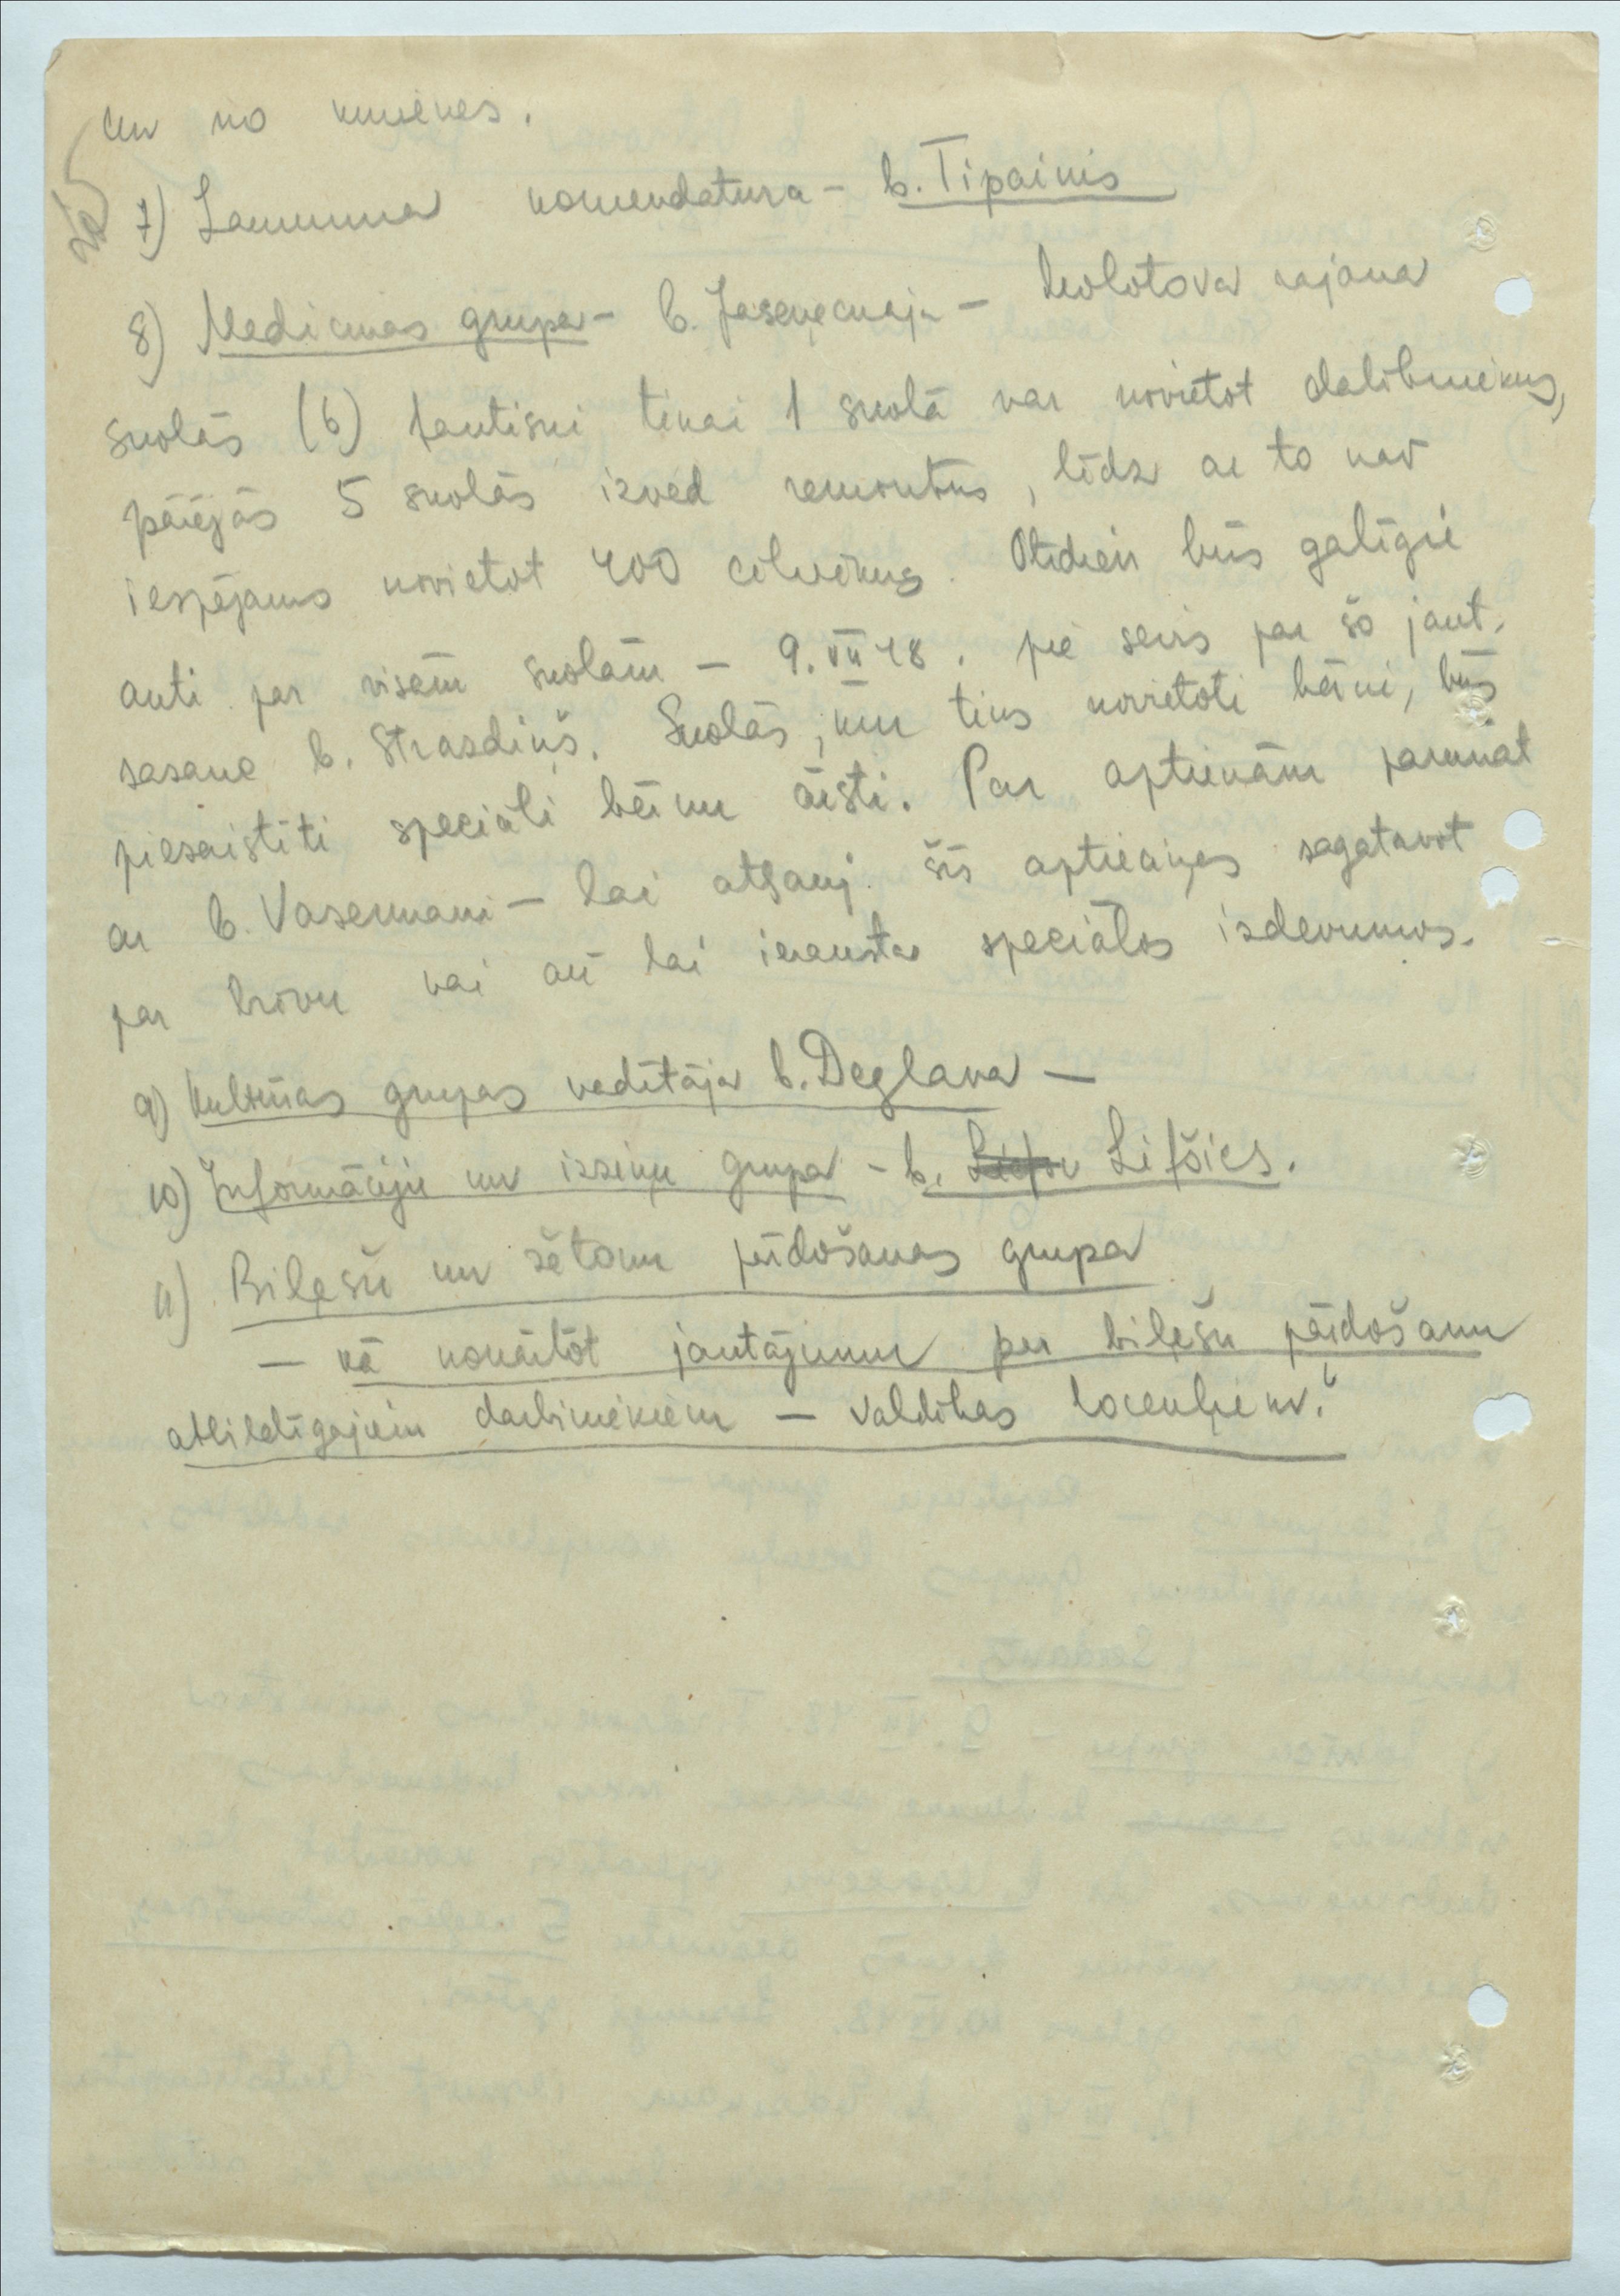 un no kurienes.
7) Laukuma komendatura - b. Tipainis
8) Medicinas grupa - b. Jaseņeckaja - Molotova rajona
skolās (6) faktiski tikai 1 skolā var novietot dalībniekus,
pārējās 5 skolās izved remontus, līdz ar to nav
iespējams novietot 400 cilvēkus. Otrdien būs galīgie
akti par visām skolām - 9.VII 48. pie sevis par šo jaut.
sasauc b. Strazdiņš. Skolās, kur tiks novietoti bērni, būs
piesaistīti speciāli bērnu ārsti. Par aptiekām parunāt
ar b. Vasermani - lai atļauj šīs aptieciņas sagatavot
par brīvu vai arī lai ieraksta speciālos izdevumos.
9) Kultūras grupas vadītāja b. Deglava -
10) Informāciju un izziņu grupa - b. Lifšics.
11) Biļešu un žetonu pārdošanas grupa
- kā nokārtot jautājumu par biļešu pārdošanu
atbildīgajiem darbiniekiem - valdības locekļiem?